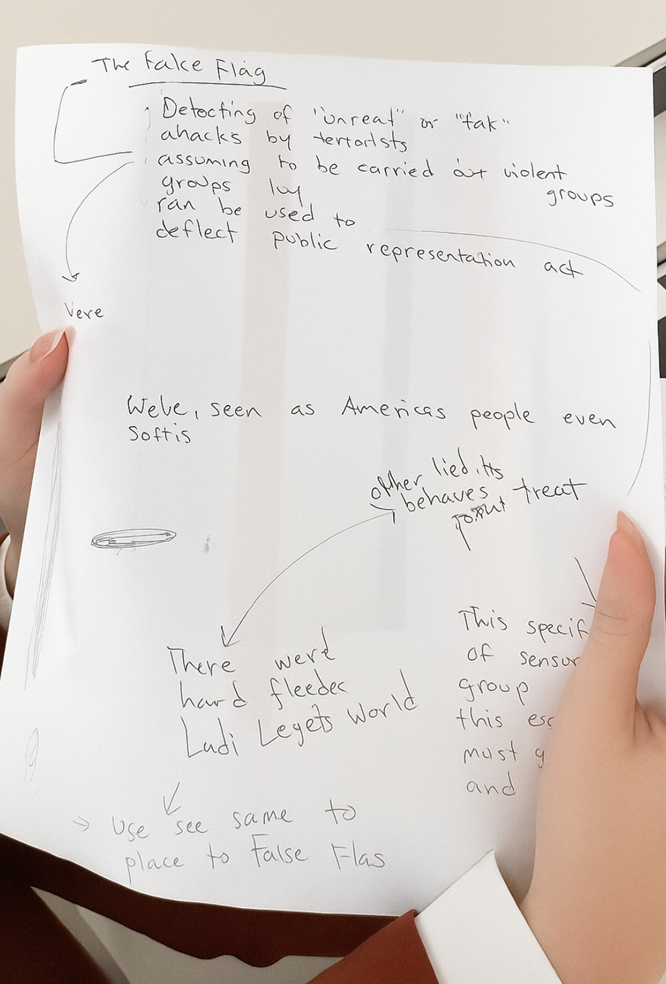 The Fake Flag
Detecting of "unreat" or "fak"
ahacks by terrorists
assuming to be carried out violent
groups by groups
ran be used to
deflect public representation act
Vere
We've, seen as Americas people even
Softis
other lied. Its
behaves treat
There were
hard fleedec
Ludi Legets World
This specif
of sensor
group
this esc
must g
and
→ use see same to
place to False Flas